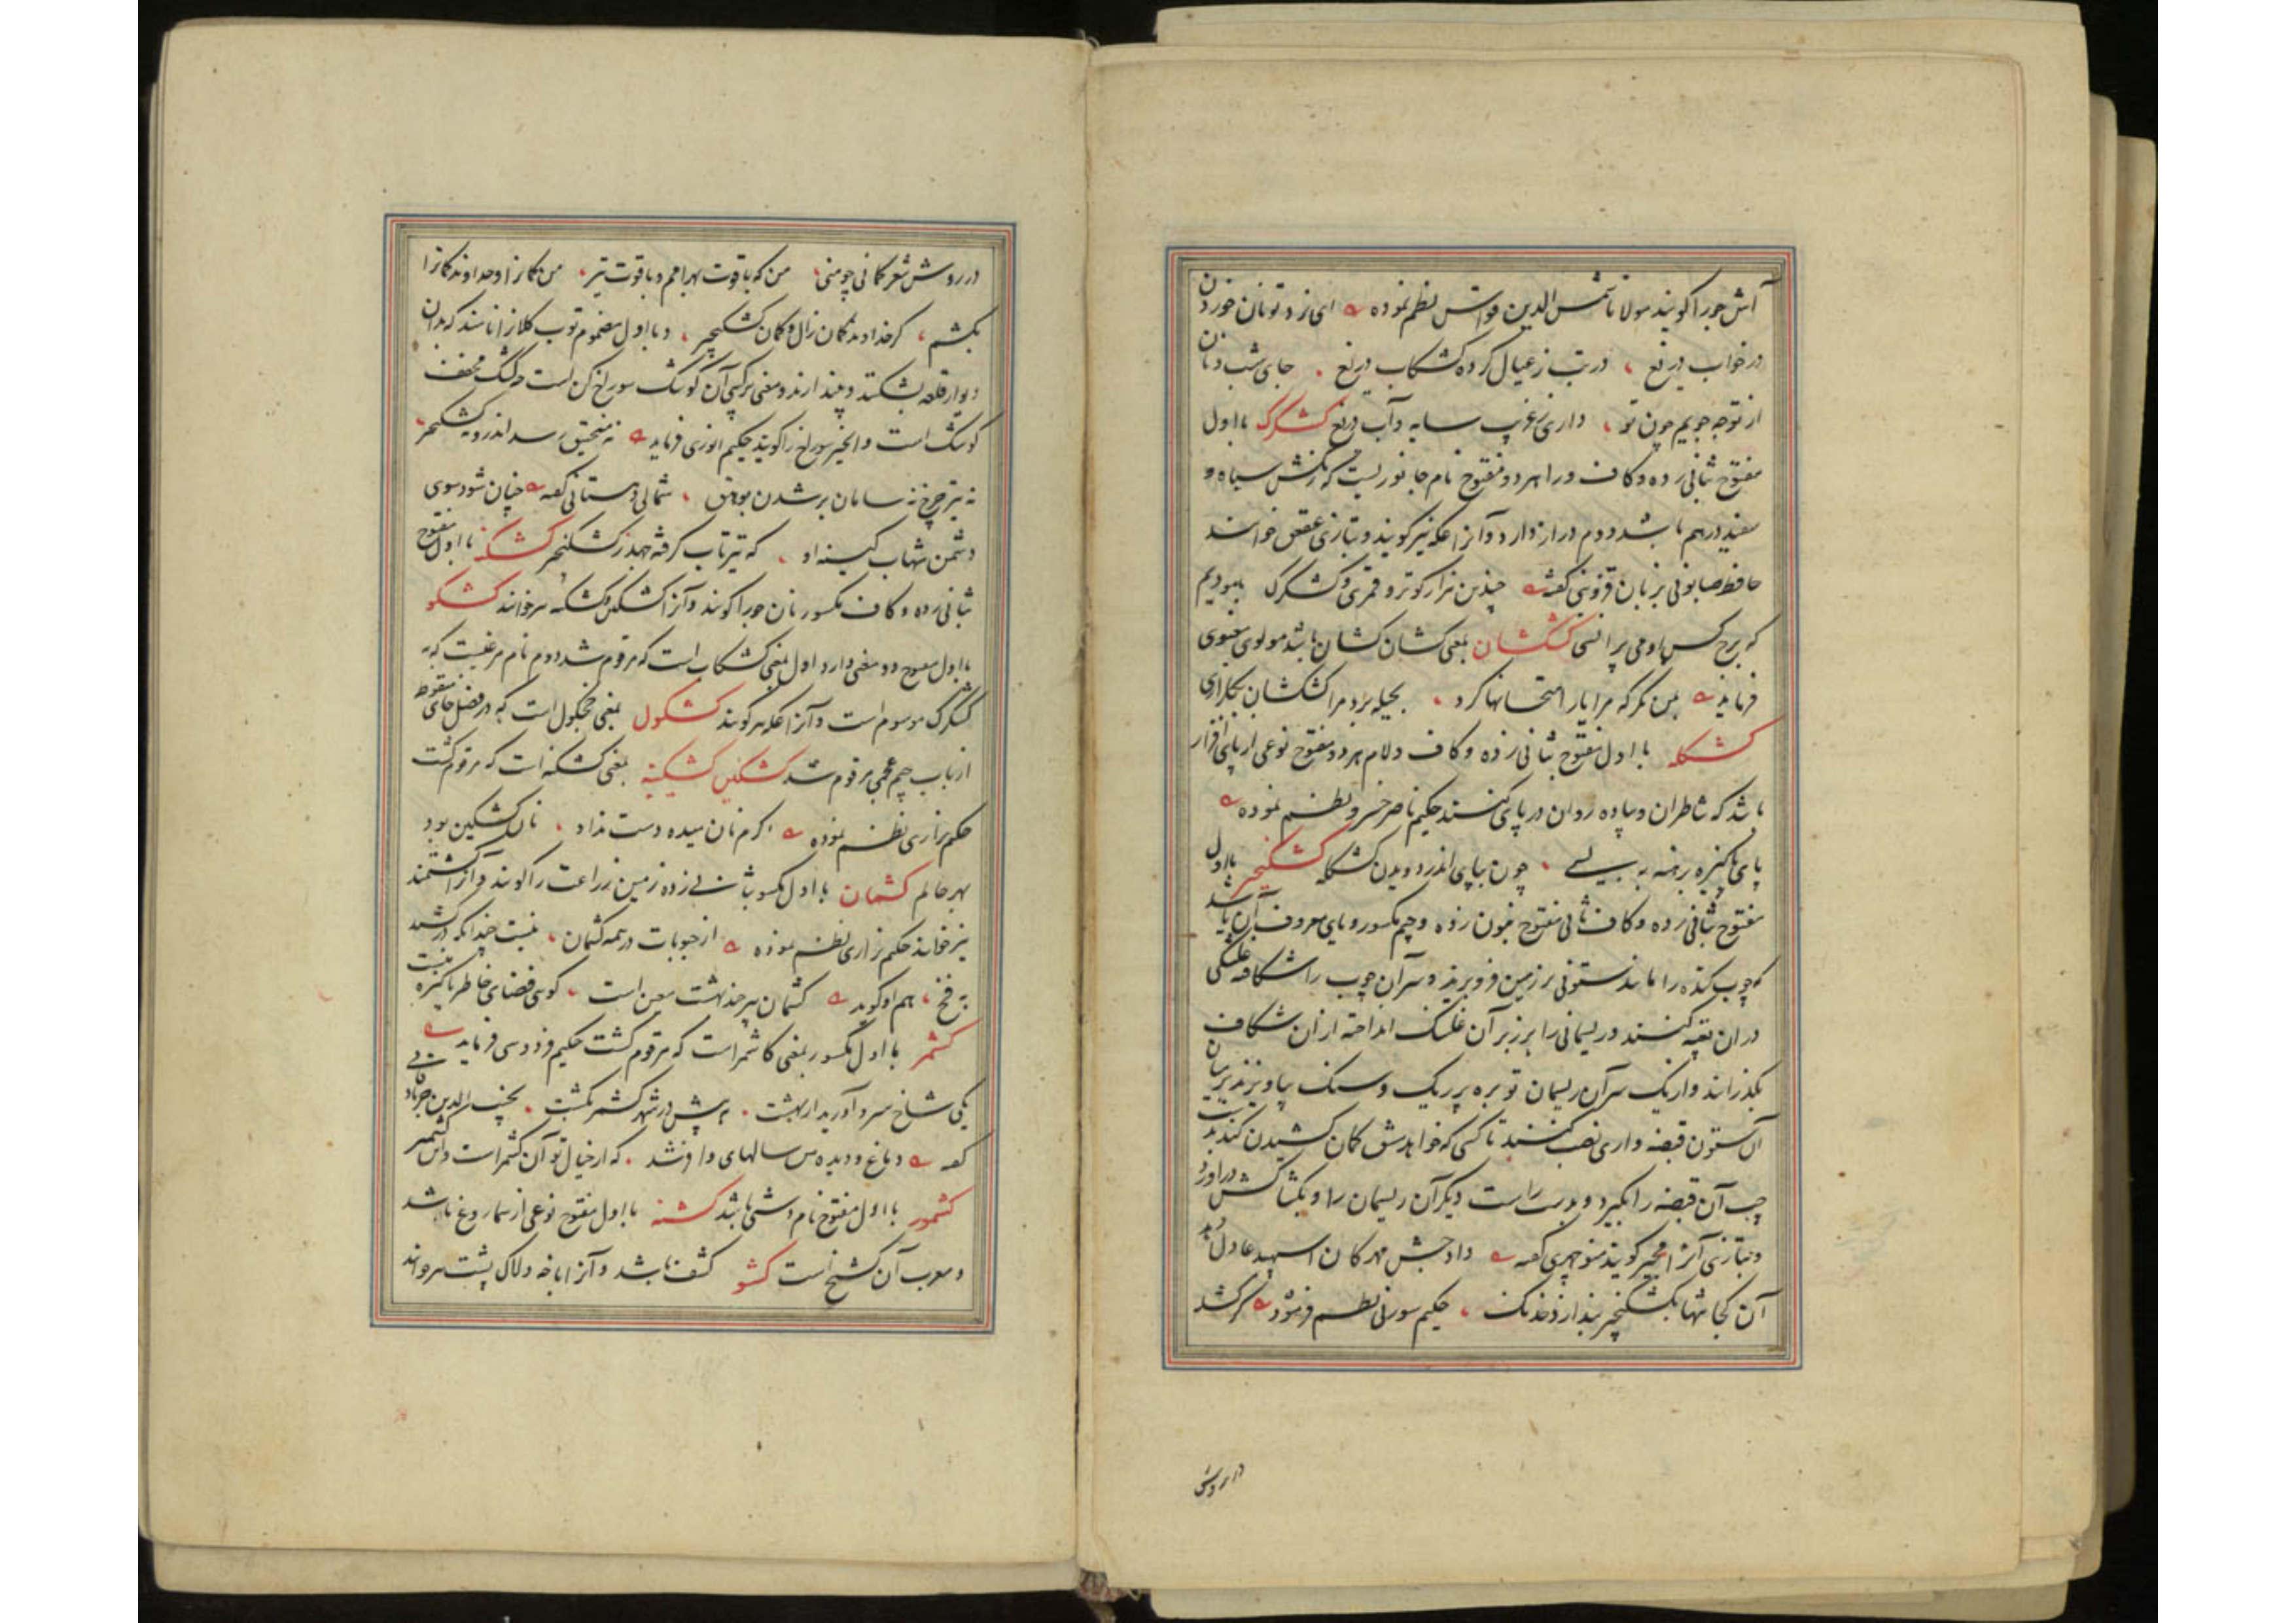 آش جو را گویند مولانا شمس الدین فواتس نظم نموده ای نزد تو نان خوردن
در خواب دریغ در تب ز عیال کرده کشکاب دریغ جای شب و نان
از تو چه جویم چون تو داری ز غریب سایه و آب دریغ کشکرک با اول
مفتوح بثانی زده و کاف و را هر دو مفتوح نام جانوریست که رنگش سیاه و
سفید درهم باشد و دم دراز دارد و آنرا عکه نیز گویند و بتازی عقعق خوانند
حافظ صابونی بزبان قزوینی گفته چندین هزار کوتر و قمری و کشکرک
که برج کس بمعنی کشان کشان باشد مولوی معنوی
فرماید بین مگر که مرا یار امتحانها کرد بحیله برد مرا کشکشان بگلزاری
کشکله با اول مفتوح بثانی زده و کاف و لام هر دو مفتوح نوعی از پای افزار
باشد که شاطران و پیاده روان در پای کنند حکیم ناصر خسرو نظم نموده
پای پاکیزه برهنه به بسی چون بپای اندر دویدن کشکله کشکنجیر با اول
مفتوح بثانی زده و کاف ثانی مفتوح بنون زده و جیم مکسور و یای معروف آن باشد
که چوب کنده را مانند ستونی بزمین فرو برند و سر آن چوب را شکافته غلتکی
در ان تعبیه کنند و ریسمانی را بر زبر آن غلتک انداخته از ان شکاف
بگذرانند و از یک سر آن ریسمان توبره پر ریک و سنک بیاویزند و بر میان
آن ستون قبضه واری نصب کنند تا کسی که خواهد مشق کمان کشیدن کند بدست
چپ آن قبضه را بگیرد و بدست راست دیگر آن ریسمان را و بکشاکش در آورد
و بتازی آنرا گویند منوچهری گفته داد جشن مهرکان اسپهبد عادل دهد
آن کجا تنها بکشکنجیر بندازد خدنک حکیم سوزنی نظم فرموده سرکشد
در روش
در روش شعر کمانی چو منی من که با قوت بهرامم و با قوت تیر من کمانرا و خداوند کمانرا
بکشم گر خداوند کمان زال و کمان کشکنجیر و با اول مضموم توپ کلانرا نامند که بدان
دیوار قلعه بشکنند و بیندازند و معنی ترکیبی آن کوشک سوراخ کن است چه کشک مخفف
کوشک است و انجیر سوراخ را گویند حکیم انوری فرماید نه منجنیق رسد اندرو نه کشکنجیر
نه تیر چرخ نه سامان بر شدن بوهق شمالی دهستانی گفته چنان شود سوی
دشمن شهاب کینه او که تیر تاب گرفته جهد ز کشکنجیر کشکنه با اول مفتوح
بثانی زده و کاف مکسور نان جو را گویند و آنرا کشکین و کشکینه نیز خوانند کشکو
با اول مفتوح دو معنی دارد اول بمعنی کشکاب است که مرقوم شد دوم نام مرغیست که به
کشکرک موسوم است و آنرا عکه نیز گویند کشکول بمعنی خچکول است که در فصل خای منقوطه
از باب جیم عجمی مرقوم شد کشکین کشکینه بمعنی کشکنه است که مرقوم گشت
حکیم نزاری نظم نموده گرم نان میده دست نداد نان کشکین بود
بهر حالم کشمان با اول مکسور بثانی زده زمین زراعت را گویند و آنرا کشتمند
نیز خوانند حکیم نزاری نظم نموده از حبوبات در همه کشمان نیست چندانکه در شود
به فخ هم او گوید کشمان سپر چند بهشت معین است گوئی فضای خاطر پاکیزه منست
کشمر با اول مکسور بمعنی کاشمر است که مرقوم گشت حکیم فردوسی فرماید
یکی شاخ سرو آورید از بهشت به پیش در شهر کشمر بکشت نجیب الدین جرفادقانی
گفته دماغ و دیده من سالهای وافر شد که از خیال تو آن کشمر است و این کشمیر
کشمور با اول مفتوح نام دشتی باشد کشنه با اول مفتوح نوعی از سماروغ باشد
و معرب آن کشنج است کشو کشف باشد و آنرا باخه و لاک پشت نیز خوانند